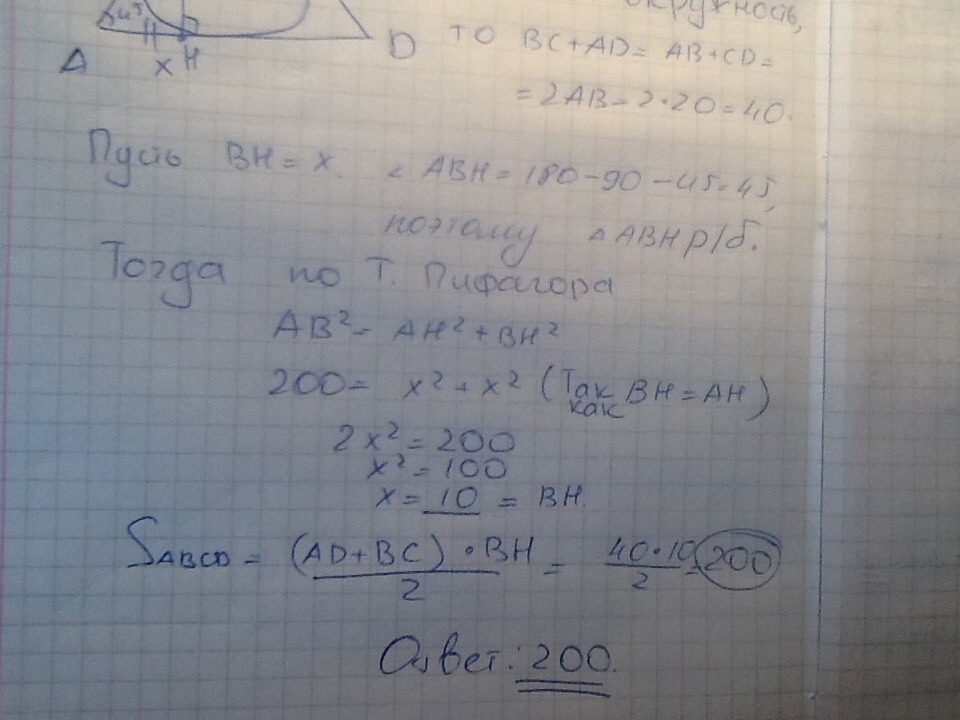 окружность,
45°
A x H D
то BC+AD= AB+CD=
=2AB=2·20=40.
Пусть BH=x. ∠ABH=180-90-45=45,
поэтому △ABH р/б.
Тогда по Т. Пифагора
AB²= AH²+BH²
200= x²+x² (Так как BH=AH)
2x²=200
x²=100
x=10 = BH.
SABCD= (AD+BC)·BH/2 = 40·10/2=200
Ответ: 200.